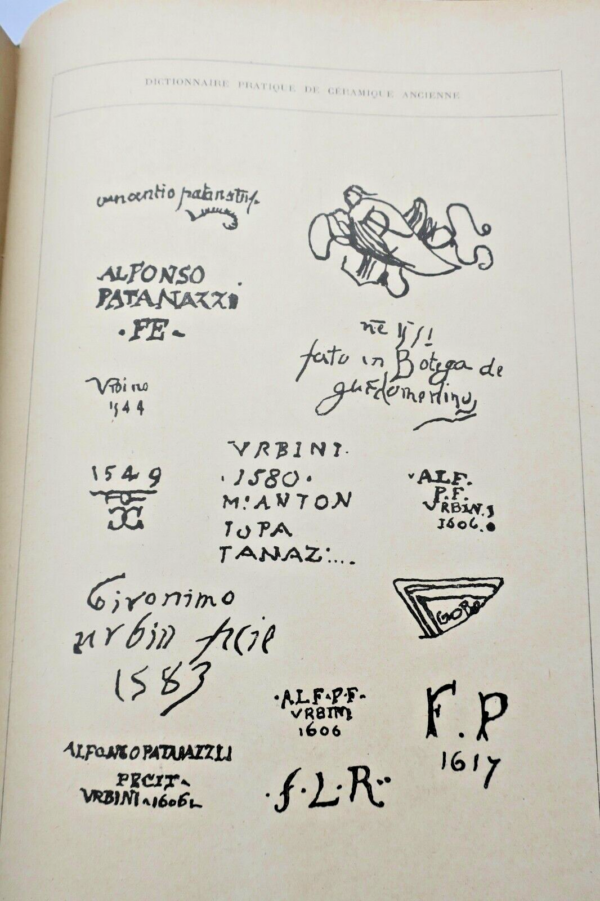 DICTIONNAIRE PRATIQUE DE CÉRAMIQUE ANCIENNE
ALFONSO
PATANAZZI
·FE~
fato in Botega de
Vrbino
1544
1549
VRBINI.
·1580·
M: ANTON
IOPA
TANAZ:....
ALF.
P.F.
VRBIN.
1606.
Gironimo
urbin fecie
1583
GOBO
·ALF·P·F·
VRBINI
1606
F.P
1617
ALFONSO PATANAZZI
FECIT~
VRBINI~1606
·f·L·R··